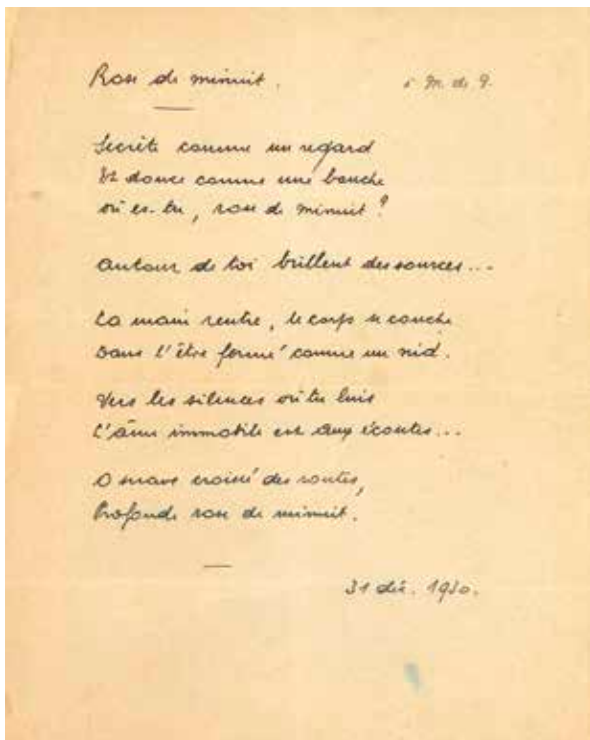 Rose de minuit.
à M. de G.
Secrète comme un regard
Et douce comme une bouche
où es-tu, rose de minuit ?
Autour de toi brillent des sources...
La main rentre, le corps se couche
Dans l'être fermé comme un nid.
Vers les silences où tu luis
L'âme immobile est aux écoutes...
O suave croisée des routes,
Profonde rose de minuit.
31 déc. 1930.